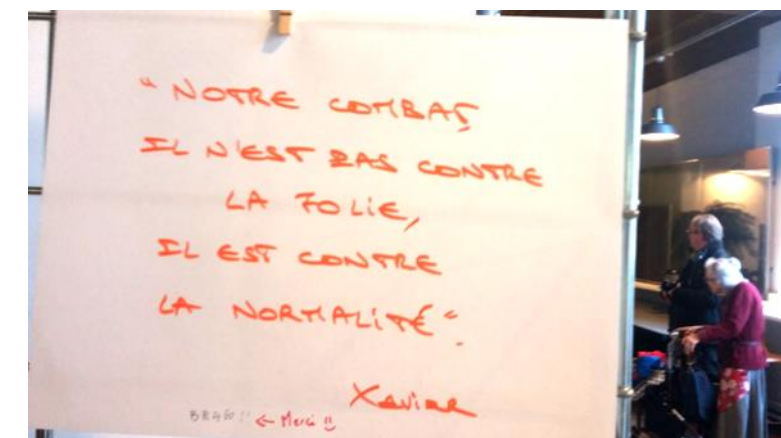 "NOTRE COMBAT,
IL N'EST PAS CONTRE
LA FOLIE,
IL EST CONTRE
LA NORMALITÉ".
Xavier
BRAVO!! ← Merci !!